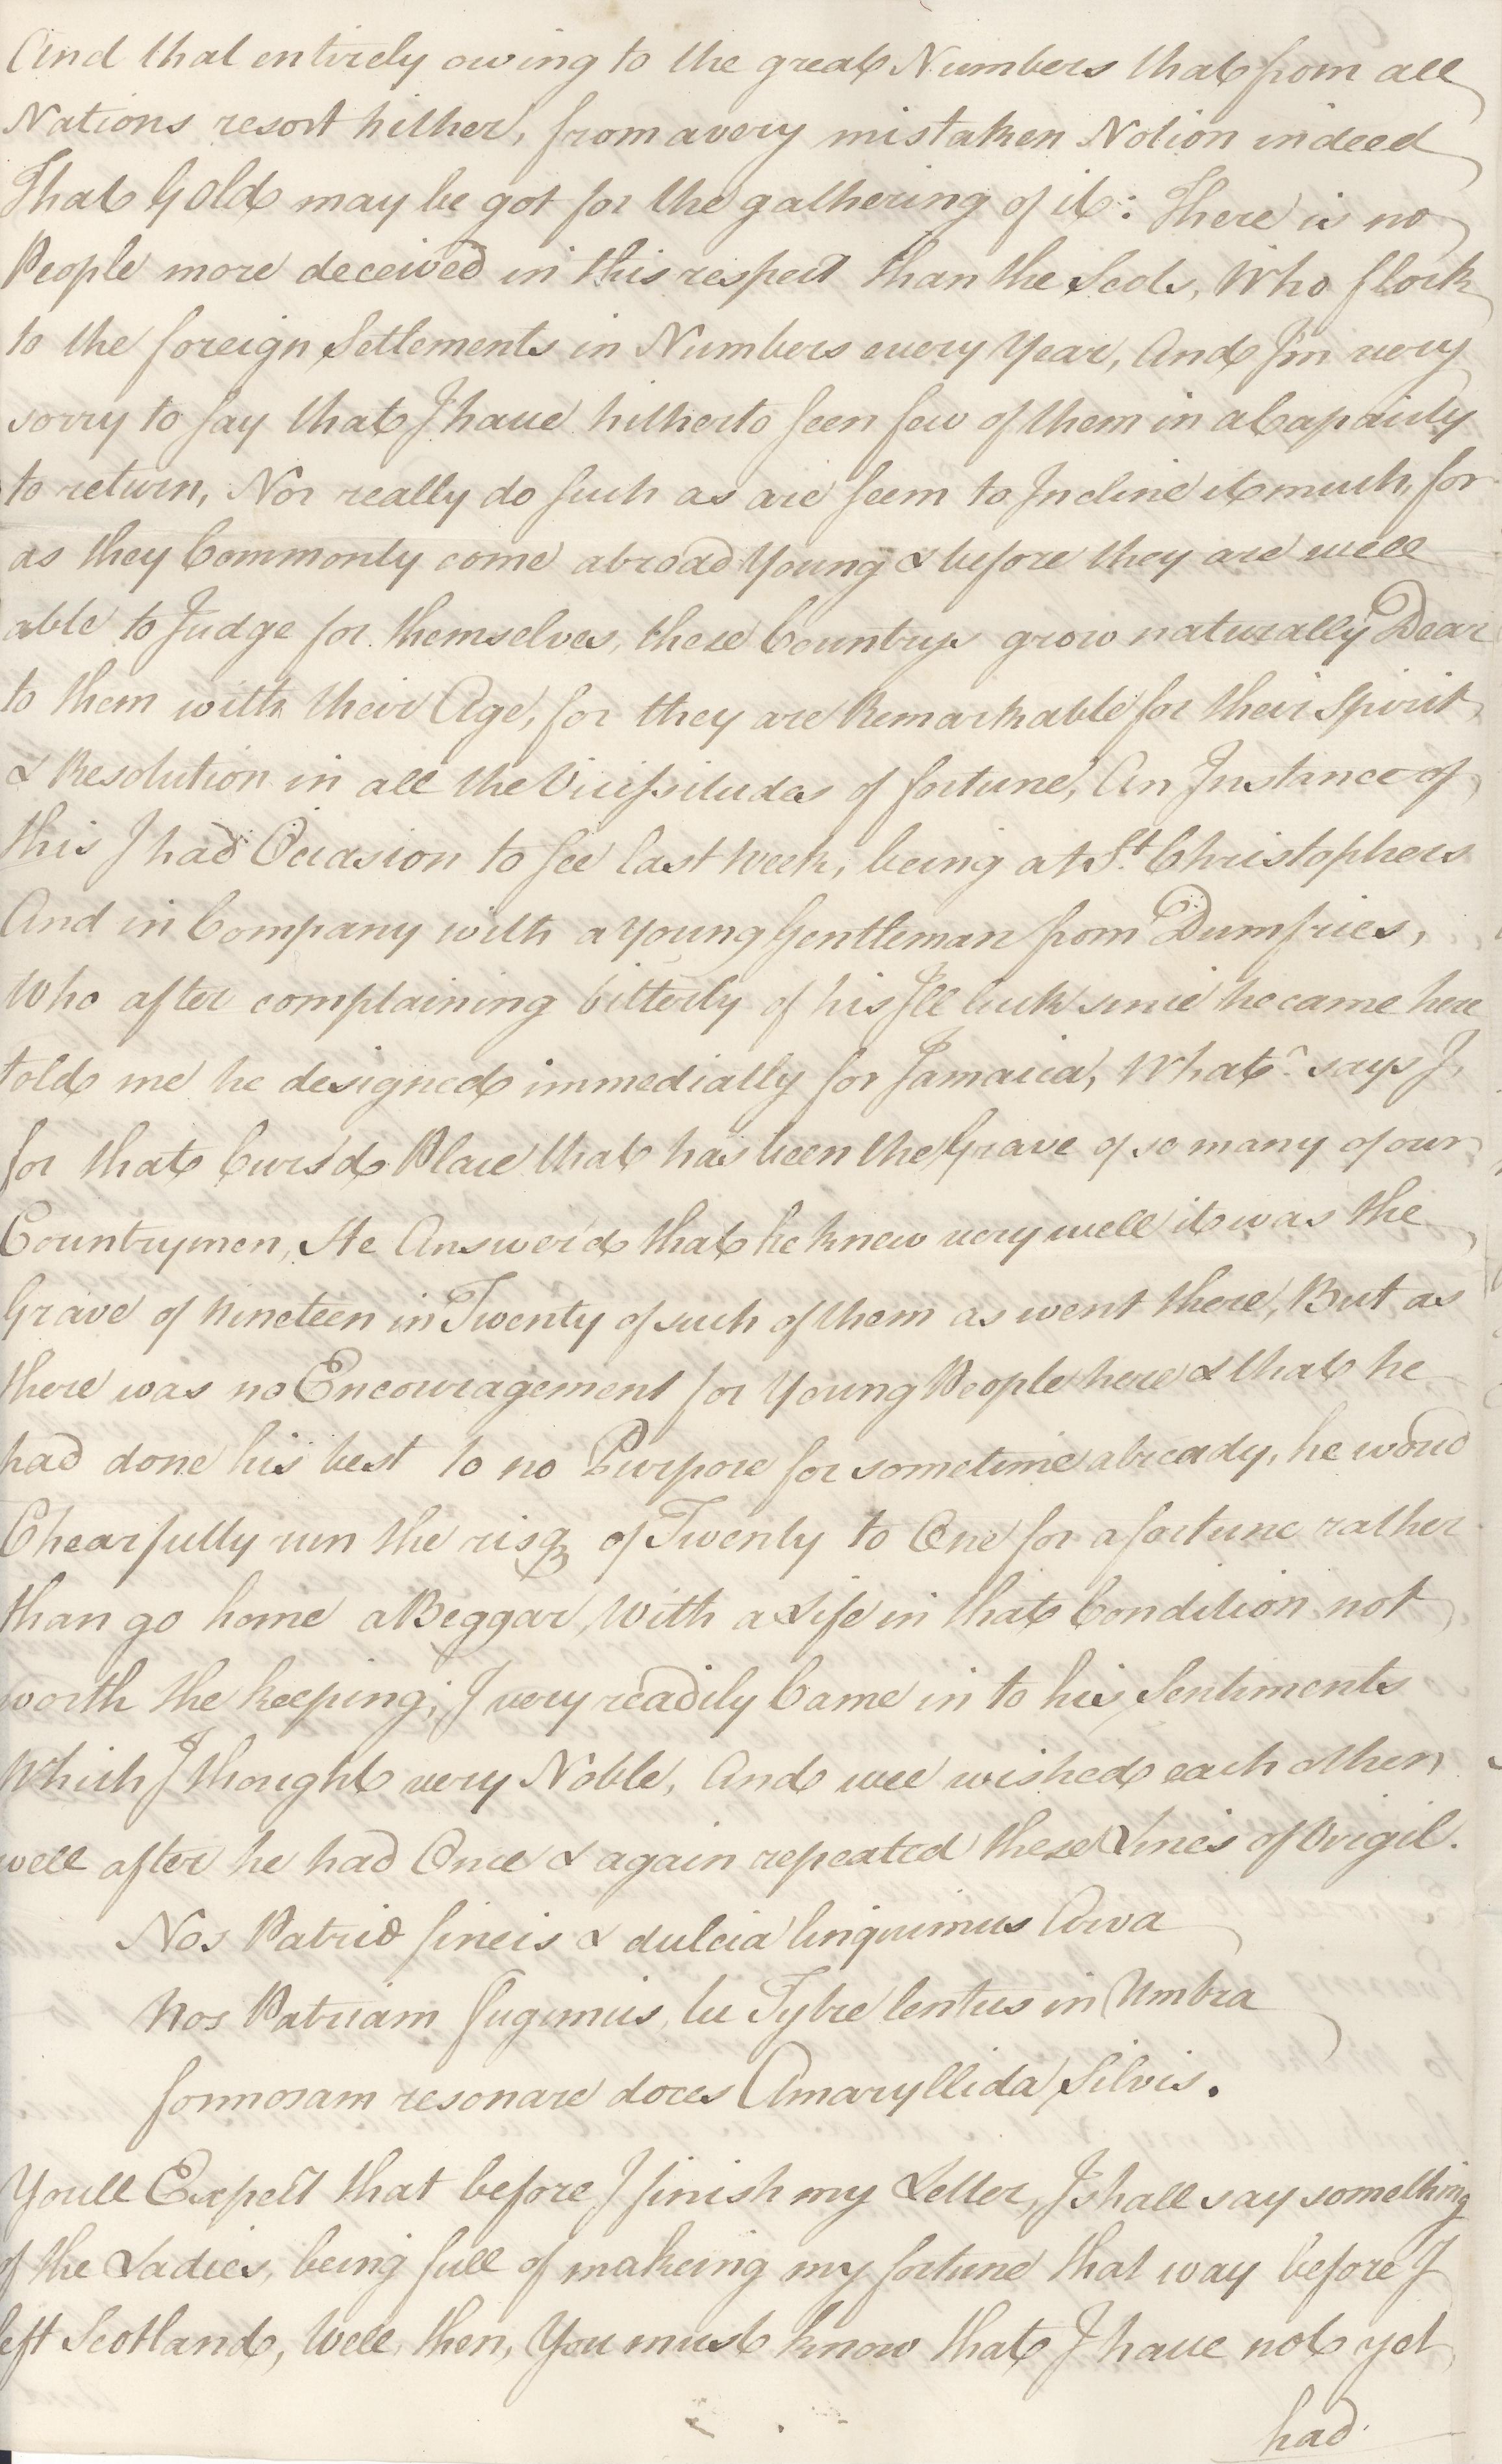 And that entirely owing to the great Numbers that from all
Nations resort hither, from a very mistaken Notion indeed
That Gold may be got for the gathering of it: There is no
People more deceived in this respect than the Scots, Who flock
to the foreign Setlements in Numbers every Year, And I'm very
sorry to say that I have hitherto seen few of them in a Capacity
to return, Nor really do such as are seem to Incline it much, for
as they Commonly come abroad Young & before they are well
able to Judge for themselves, these Countrys grow naturally Dear
to them with their Age, for they are Remarkable for their Spirit
& Resolution in all the Vicissitudes of fortune, An Instance of
this I had Occasion to see last Week, being at St. Christophers
And in Company with a young Gentleman from Dumfries,
Who after complaining bitterly of his Ill luck since he came here
told me he designed immediatly for Jamaica, What? says I,
for that Curs'd Place that has been the Grave of so many of our
Countrymen, He Answer'd that he knew very well it was the
Grave of Nineteen in Twenty of such of them as went there, But as
there was no Encouragement for Young People here & that he
had done his best to no Purpose for sometime already, he woud
Chearfully run the risq of Twenty to One for a fortune rather
than go home a Beggar, With a Life in that Condition not
worth the keeping; I very readily Came in to his Sentiments
Which I thought very Noble, And wee wished each other
well after he had Once & again repeated these Lines of Virgil.
Nos Patriæ fineis & dulcia linquimus Arva
Nos Patriam fugimus, tu Tytre lentus in Umbra
formosam resonare doces Amaryllida Silvis.
Youll Expect that before I finish my Letter, I shall say something
of the Ladies, being full of makeing my fortune that way before I
left Scotland, Well then, You must know that I have not yet
had